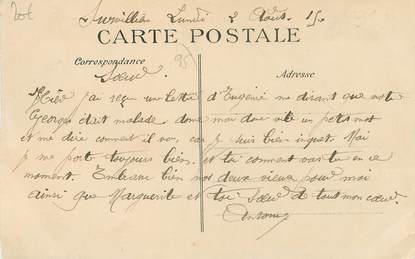 Survilliers Lundi 2 Août 15
CARTE POSTALE
95
Correspondance
Adresse
Sœur
Hier j'ai reçu une lettre d'Eugénie me disant que
Georges était malade donne moi donc vite un petit mot
et me dire comment il va, car je suis bien inquiet. Moi
je me porte toujours bien, et toi comment vas tu en ce
moment. Embrasse bien nos deux vieux pour moi
ainsi que Marguerite et toi Sœur de tout mon cœur.
Antony